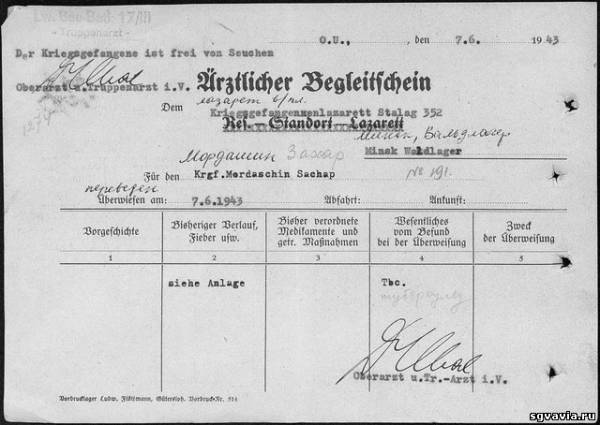 Lw. Bau Batl. 17/III
- Truppenarzt -
O.U., den 7.6. 1943
Der Kriegsgefangene ist frei von Seuchen
Oberarzt u.Truppenarzt i.V.
Ärztlicher Begleitschein
лазарет в/пл.
Dem Kriegsgefangenenlazarett Stalag 352
Res.-Standort-Lazarett
Минск, Вальдлагер
Minsk Waldlager
Мордашин Захар
Für den Krgf.Mordaschin Sachap № 191.
переведен
Überwiesen am: 7.6.1943 Abfahrt: Ankunft:
Vorgeschichte
Bisheriger Verlauf, Fieber usw.
Bisher verordnete Medikamente und getr. Maßnahmen
Wesentliches vom Befund bei der Überweisung
Zweck der Überweisung
1 2 3 4 5
siehe Anlage Tbc.
туберкулез
Oberarzt u.Tr.-Arzt i.V.
Vordrucklager Ludw. Flöttmann, Gütersloh. Vordruck-Nr. 514
sgvavia.ru